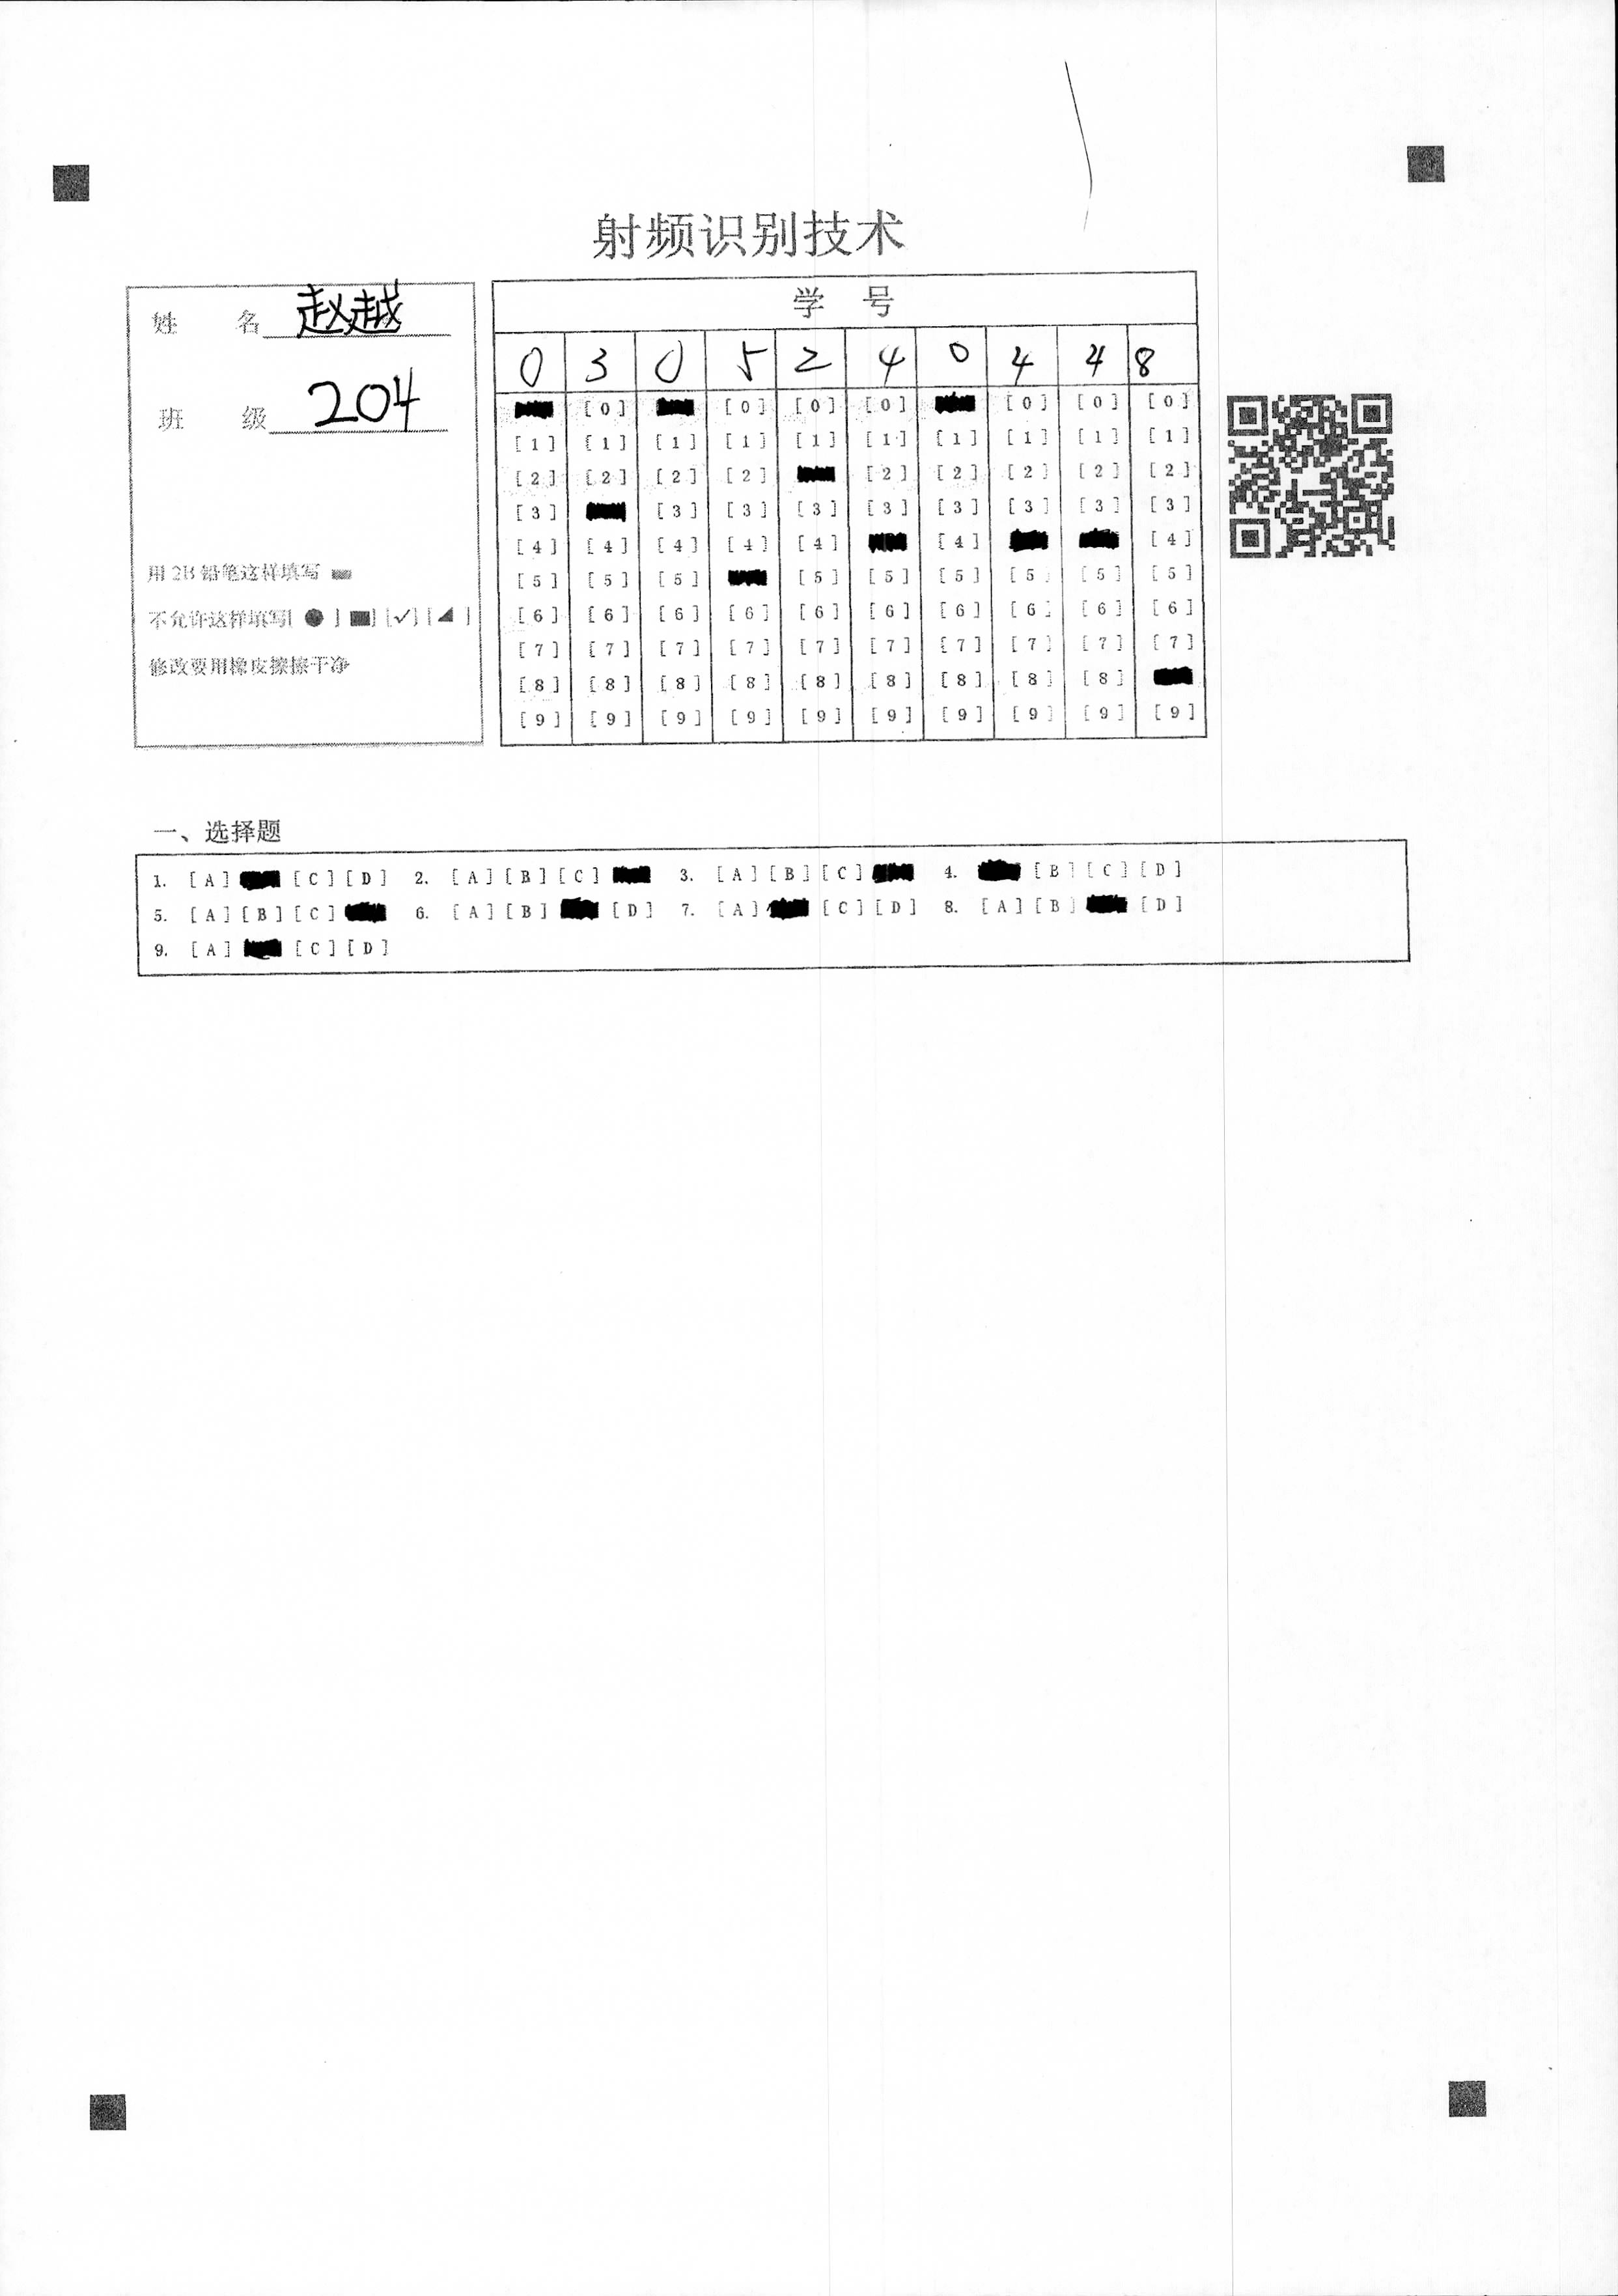 射频识别技术
姓 名 赵越
班 级 204
用 2B 铅笔这样填写
不允许这样填写[ ● ] [■] [✓] [◢ ]
修改要用橡皮擦擦干净
学 号
0 3 0 5 2 4 0 4 4 8
[0] [0] [0] [0] [0] [0] [0]
[1] [1] [1] [1] [1] [1] [1] [1] [1] [1]
[2] [2] [2] [2] [2] [2] [2] [2] [2]
[3] [3] [3] [3] [3] [3] [3] [3] [3]
[4] [4] [4] [4] [4] [4] [4]
[5] [5] [5] [5] [5] [5] [5] [5] [5]
[6] [6] [6] [6] [6] [6] [6] [6] [6] [6]
[7] [7] [7] [7] [7] [7] [7] [7] [7] [7]
[8] [8] [8] [8] [8] [8] [8] [8] [8]
[9] [9] [9] [9] [9] [9] [9] [9] [9] [9]
一、选择题
1. [A] [C] [D] 2. [A] [B] [C] 3. [A] [B] [C] 4. [B] [C] [D]
5. [A] [B] [C] 6. [A] [B] [D] 7. [A] [C] [D] 8. [A] [B] [D]
9. [A] [C] [D]